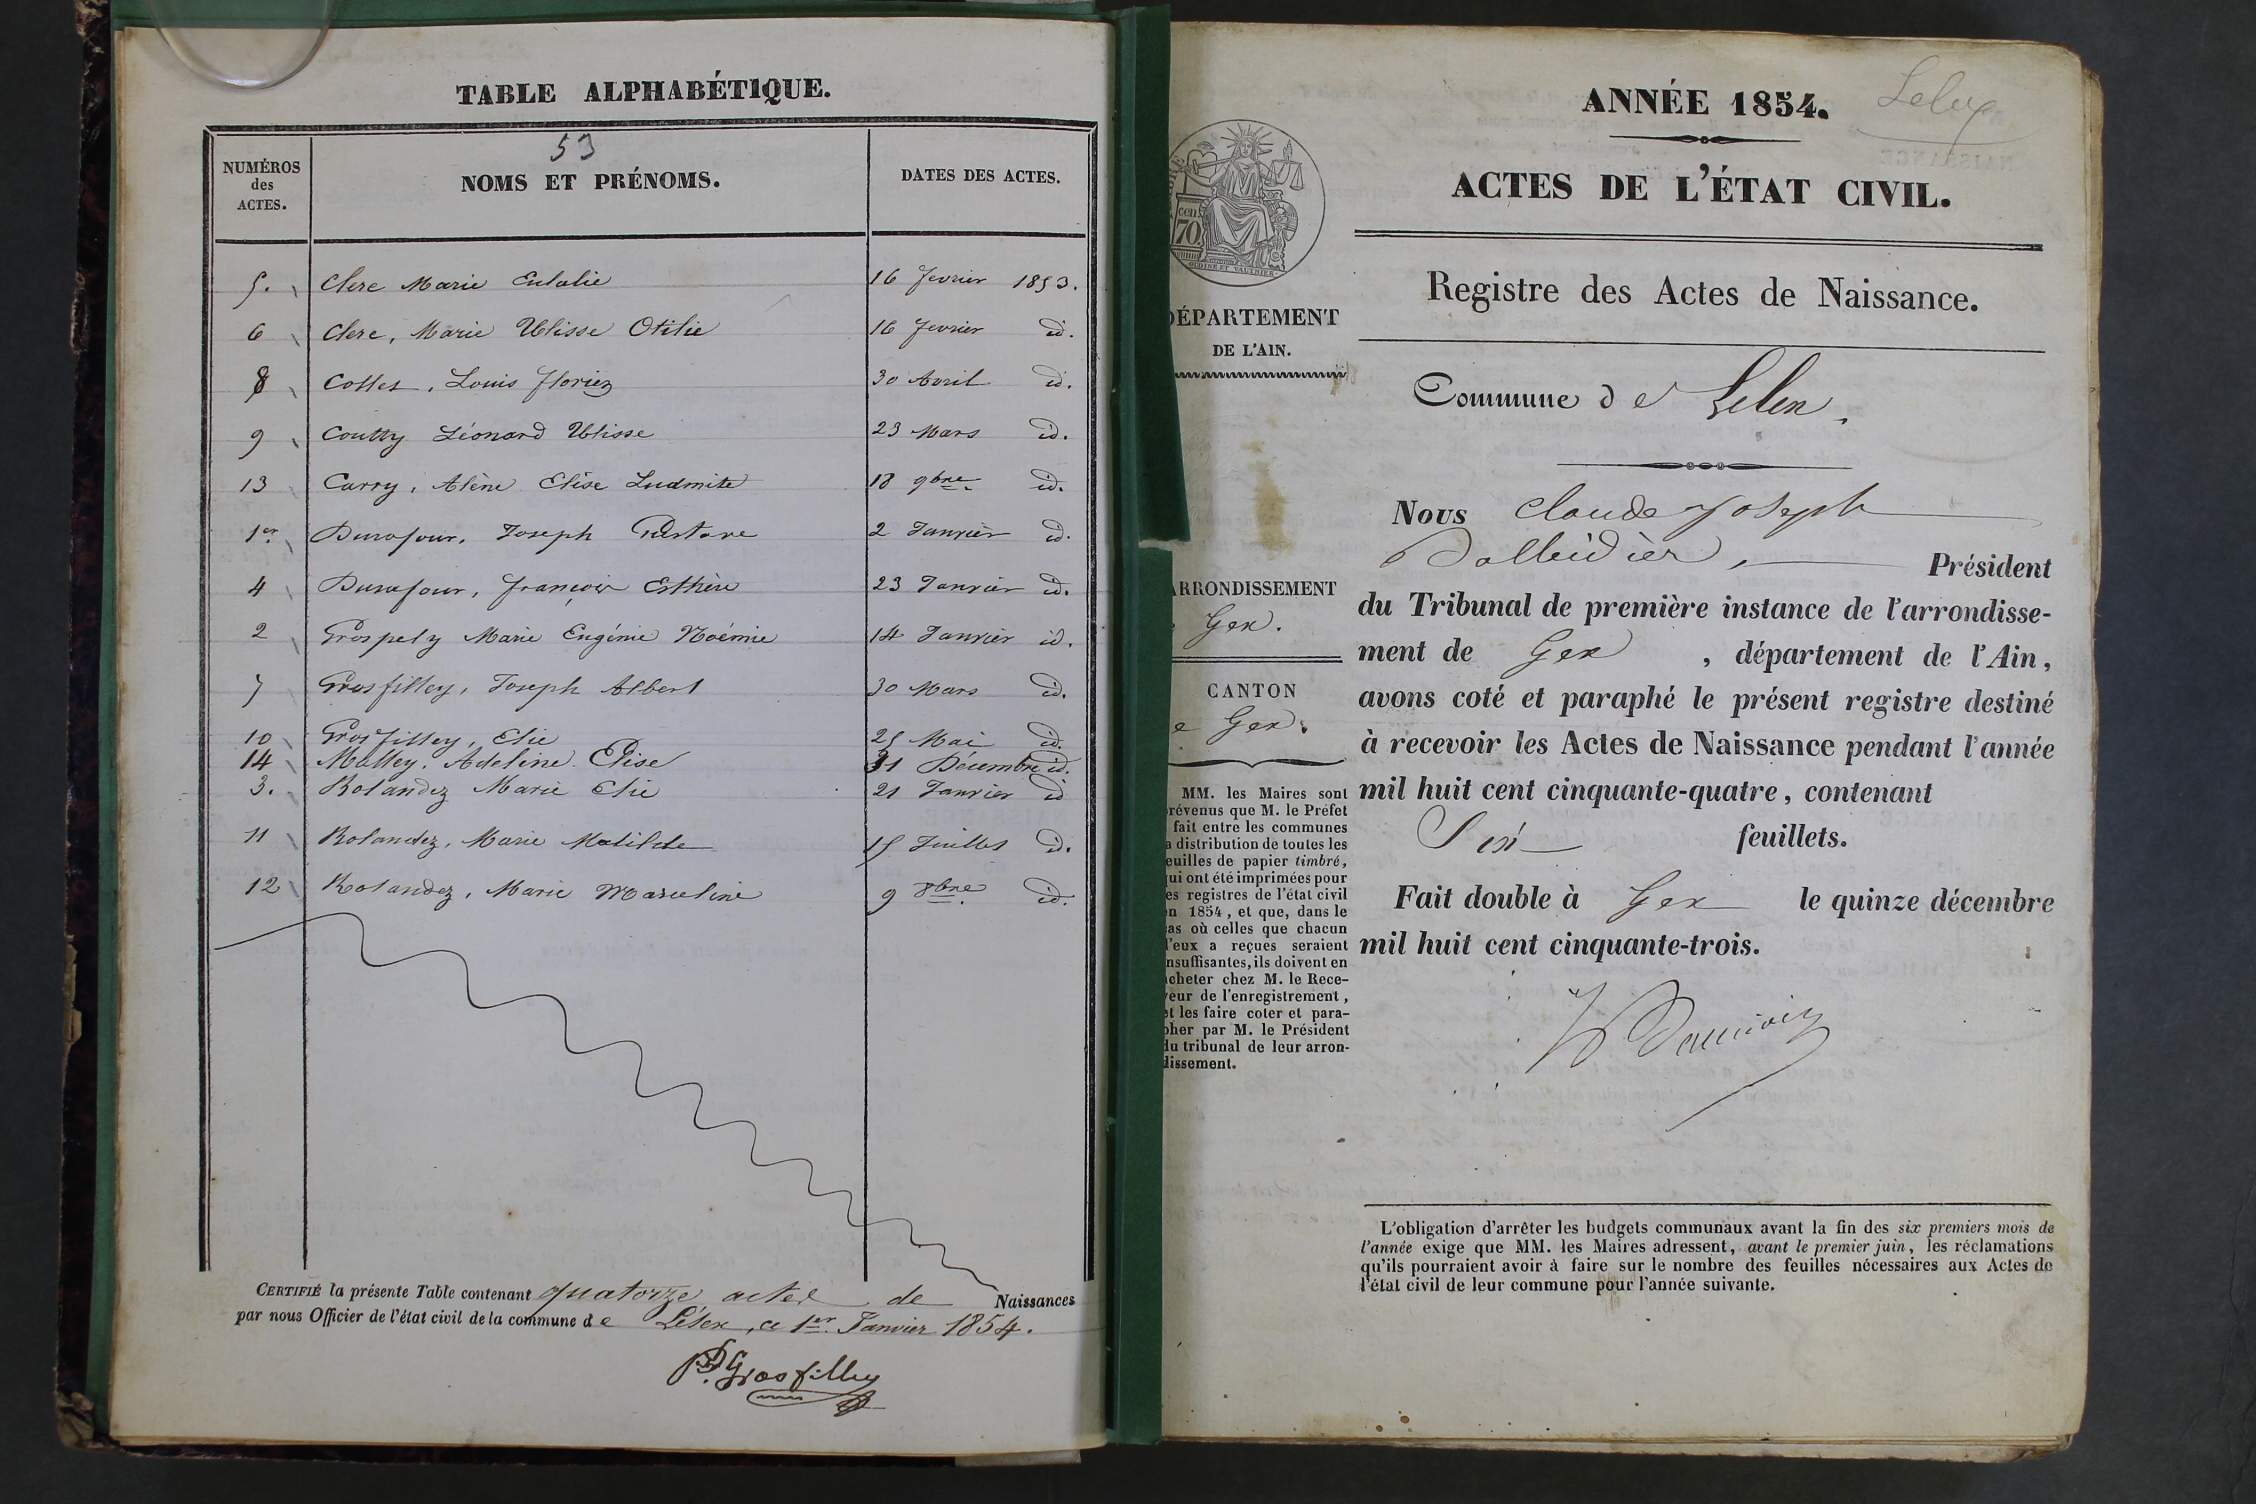 TABLE ALPHABÉTIQUE.
53
NUMÉROS des ACTES.
NOMS ET PRÉNOMS.
DATES DES ACTES.
5. Clerc Marie Eulalie 16 Fevrier 1853.
6 Clerc, Marie Ulisse Otilie 16 Fevrier id.
8 Collet, Louis Floriez 30 Avril id.
9 Coutty Léonard Ulisse 23 Mars id.
13 Carry, Alène Elise Ludmite 18 9bre id.
1er Durafour, Joseph Gustave 2 Janvier id.
4 Durafour, François Esthère 23 Janvier id.
2 Grospely Marie Eugénie Noémie 14 Janvier id.
7 Grosfilley, Joseph Albert 30 Mars id.
10 Grosfilley, Elie 25 Mai id.
14 Malley, Adeline Elise 31 Décembre id.
3. Rolandez Marie Elie 21 Janvier id
11 Rolandez, Marie Matilde 15 Juillet id.
12 Rolandez, Marie Marceline 9 8bre id.
CERTIFIÉ la présente Table contenant quatorze actes de Naissances
par nous Officier de l'état civil de la commune de Lélex, ce 1er Janvier 1854.
Grosfilley
Lelex
ANNÉE 1854.
ACTES DE L'ÉTAT CIVIL.
Registre des Actes de Naissance.
cen. 70.
OUDINE ET VAUTHIER
DÉPARTEMENT
DE L'AIN.
ARRONDISSEMENT
Gex.
CANTON
e Gex.
MM. les Maires sont
prévenus que M. le Préfet
fait entre les communes
a distribution de toutes les
feuilles de papier timbré,
qui ont été imprimées pour
es registres de l'état civil
n 1854, et que, dans le
as où celles que chacun
d'eux a reçues seraient
insuffisantes, ils doivent en
acheter chez M. le Rece-
veur de l'enregistrement,
et les faire coter et para-
pher par M. le Président
du tribunal de leur arron-
dissement.
Commune de Lelex
Nous Claude Joseph
Président
du Tribunal de première instance de l'arrondisse-
ment de Gex, département de l'Ain,
avons coté et paraphé le présent registre destiné
à recevoir les Actes de Naissance pendant l'année
mil huit cent cinquante-quatre, contenant
Six feuillets.
Fait double à Gex le quinze décembre
mil huit cent cinquante-trois.
L'obligation d'arrêter les budgets communaux avant la fin des six premiers mois de
l'année exige que MM. les Maires adressent, avant le premier juin, les réclamations
qu'ils pourraient avoir à faire sur le nombre des feuilles nécessaires aux Actes de
l'état civil de leur commune pour l'année suivante.